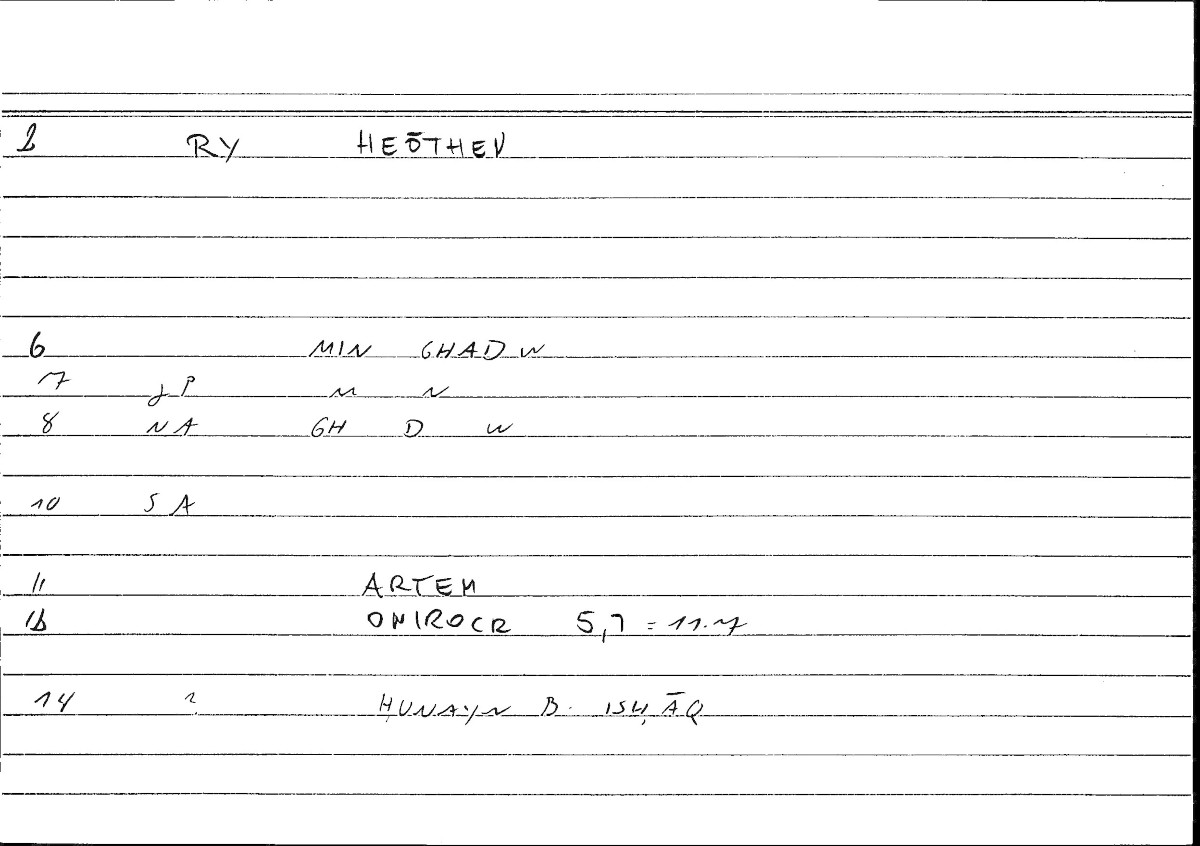 1 RY HEŌTHEN
6 MIN GHAD W
7 gP M N
8 NA GH D W
10 SA
11 ARTEM
12 ONIROCR 5,7 = 11.17
14 2 ḤUNAYN B. ISḤĀQ